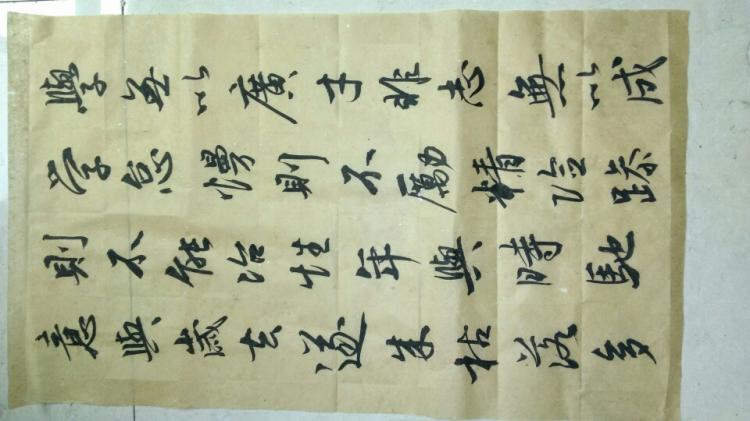 學無以廣才非志無以成
学怠慢則不勵精險躁
則不能治性年與時馳
意與歲去遂成枯落多